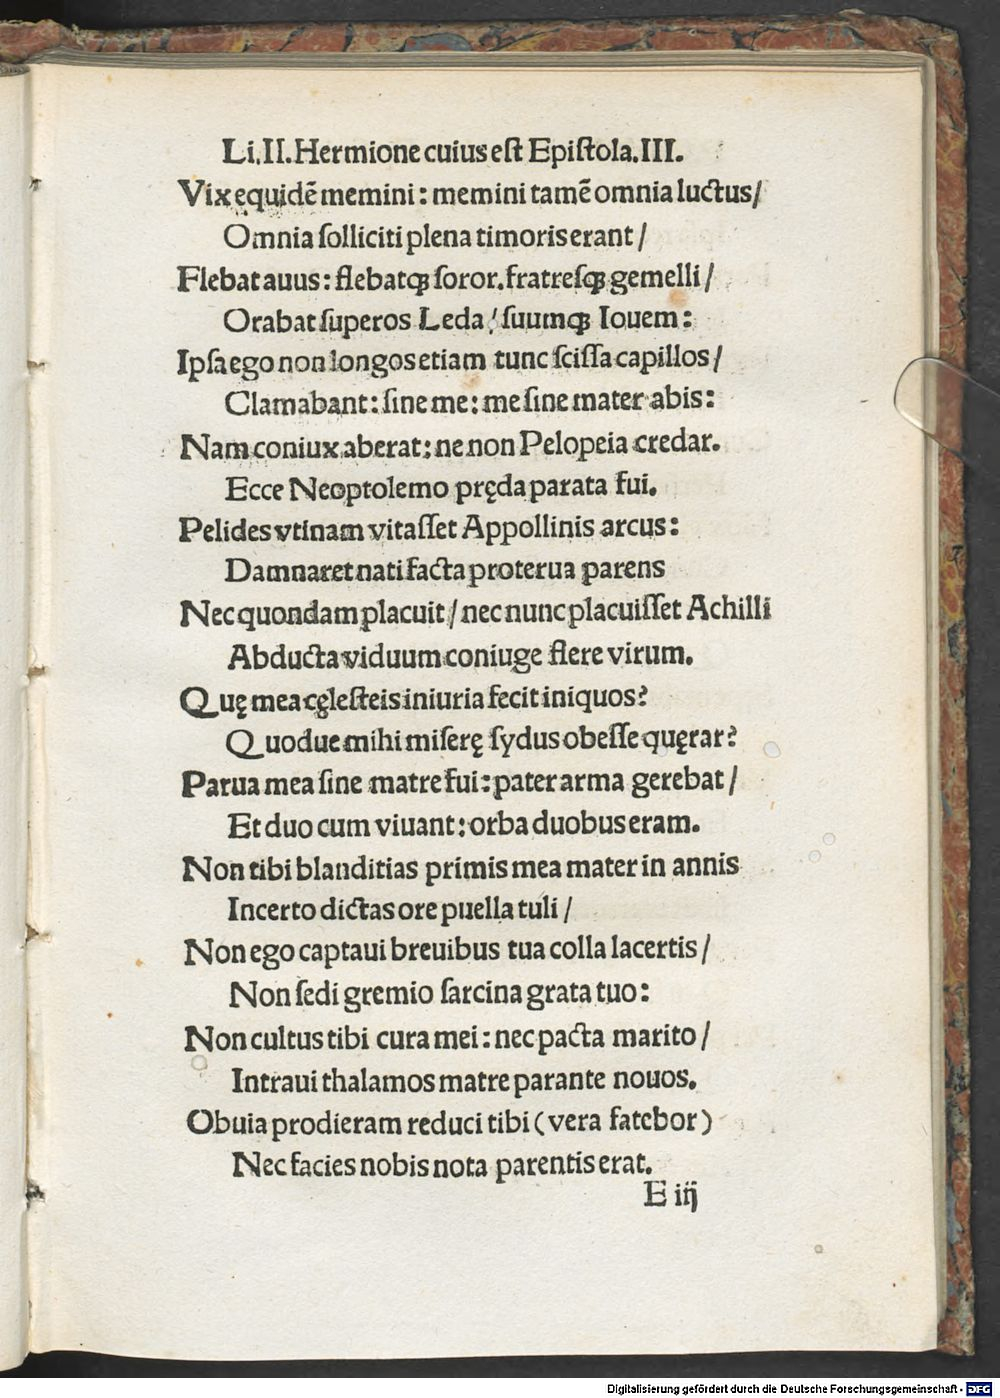 Li.II.Hermione cuius eſt Epiſtola.III.
Vix equidẽ memini: memini tamẽ omnia luctus/
Omnia ſolliciti plena timoris erant/
Flebat auus: flebatqꝫ ſoror. fratreſqꝫ gemelli/
Orabat ſuperos Leda/ ſuumqꝫ Iouem:
Ipſa ego non longos etiam tunc ſciſſa capillos/
Clamabant: ſine me: me ſine mater abis:
Nam coniux aberat: ne non Pelopeia credar.
Ecce Neoptolemo pręda parata fui.
Pelides vtinam vitaſſet Appollinis arcus:
Damnaret nati facta proterua parens
Nec quondam placuit/ nec nunc placuiſſet Achilli
Abducta viduum coniuge flere virum.
Quę mea cęleſteis iniuria fecit iniquos?
Quodue mihi miſerę ſydus obeſſe quęrar?
Parua mea ſine matre fui: pater arma gerebat/
Et duo cum viuant: orba duobus eram.
Non tibi blanditias primis mea mater in annis
Incerto dictas ore puella tuli/
Non ego captaui breuibus tua colla lacertis/
Non ſedi gremio ſarcina grata tuo:
Non cultus tibi cura mei: nec pacta marito/
Intraui thalamos matre parante nouos.
Obuia prodieram reduci tibi (vera fatebor)
Nec facies nobis nota parentis erat.
E iij
Digitalisierung gefördert durch die Deutsche Forschungsgemeinschaft - DFG